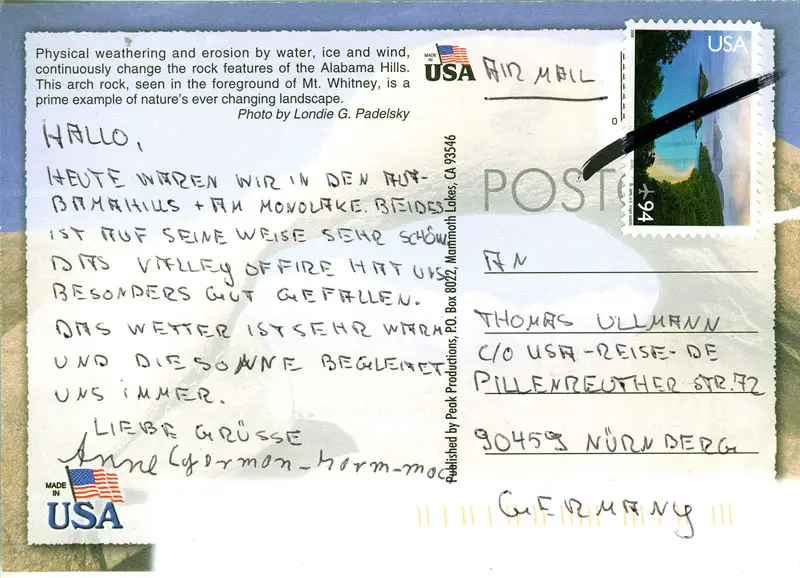 Physical weathering and erosion by water, ice and wind,
continuously change the rock features of the Alabama Hills.
This arch rock, seen in the foreground of Mt. Whitney, is a
prime example of nature's ever changing landscape.
Photo by Londie G. Padelsky
HALLO,
HEUTE WAREN WIR IN DEN ALA-
BAMAHILLS + AM MONOLAKE. BEIDES
IST AUF SEINE WEISE SEHR SCHÖN
DAS VALLEY OF FIRE HAT UNS
BESONDERS GUT GEFALLEN.
DAS WETTER IST SEHR WARM
UND DIE SONNE BEGLEITET
UNS IMMER.
LIEBE GRÜSSE
Anne
MADE
IN
USA
Published by Peak Productions, P.O. Box 8022, Mammoth Lakes, CA 93546
MADE
IN
USA
AIR MAIL
USA
94
POSTC
AN
THOMAS ULLMANN
C/O USA-REISE-DE
PILLENREUTHER STR. 72
90459 NÜRNBERG
GERMANY